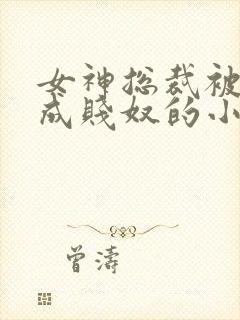 女神总裁被
成贱奴的小
曾濤